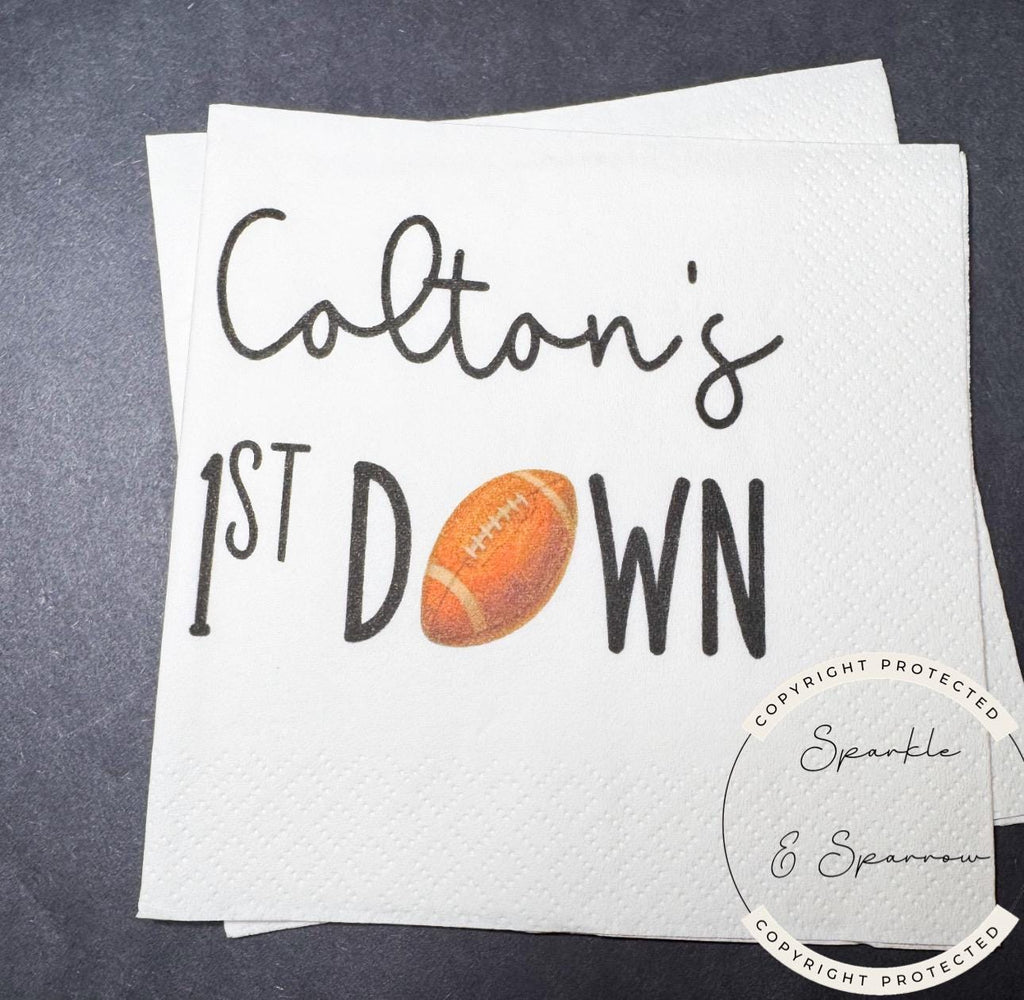 Colton's
1ST DOWN
COPYRIGHT PROTECTED
Sparkle
& Sparrow
COPYRIGHT PROTECTED